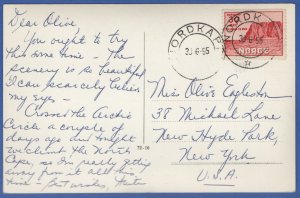 Dear Olive
You ought to try
this some time - The
scenery is so beautiful
I can scarcely believe
my eyes -
Crossed the Arctic
Circle a couple of
days ago and tonight
we climb the North
Cape, so I'm really getting
away from it all this
time - Best wishes,
72-16
NORDKAPP
30-6-55
NORDK
NORGE
Miss Olive Eagleston
38 Michael Lane
New Hyde Park,
New York
U.S.A.